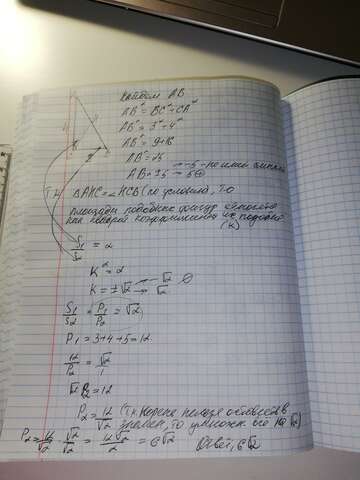 Найдём AB
AB² = BC² + CA²
AB² = 3² + 4²
AB² = 9+16
AB² = 25
AB = 25 -5 - не имеет смысла
5 ⊕
Т.к. ΔAKC = ΔHCB (по условию), то
площади подобных фигур относятся
как квадрат коэффициента их подобия
(K)
S₁/S₂ = 2
K² = 2
K = ±√2 √2
-√2
S₁/S₂ = P₁/P₂ = √2
P₁ = 3+4+5 = 12
12/P₂ = √2/1
√2 P₂ = 12
P₂ = 12/√2 (Т.к. корень нельзя оставлять в
знамен, то умножим его на √2)
P₂ = 12/√2 · √2/√2 = 12√2/2 = 6√2 Ответ: 6√2